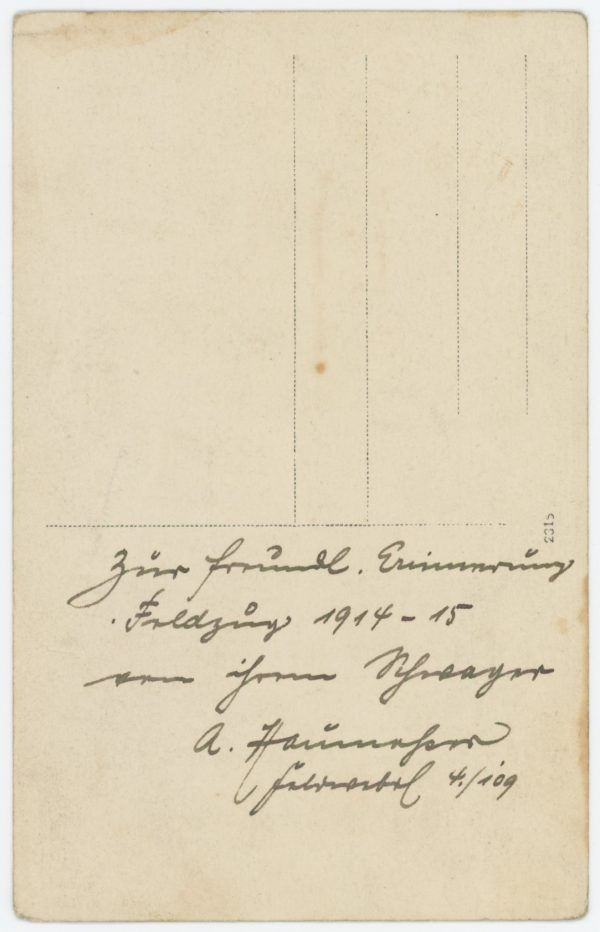 Zur freundl. Erinnerung
Feldzug 1914-15
von ihrem Schwager
A.
Feldwebel 4./109